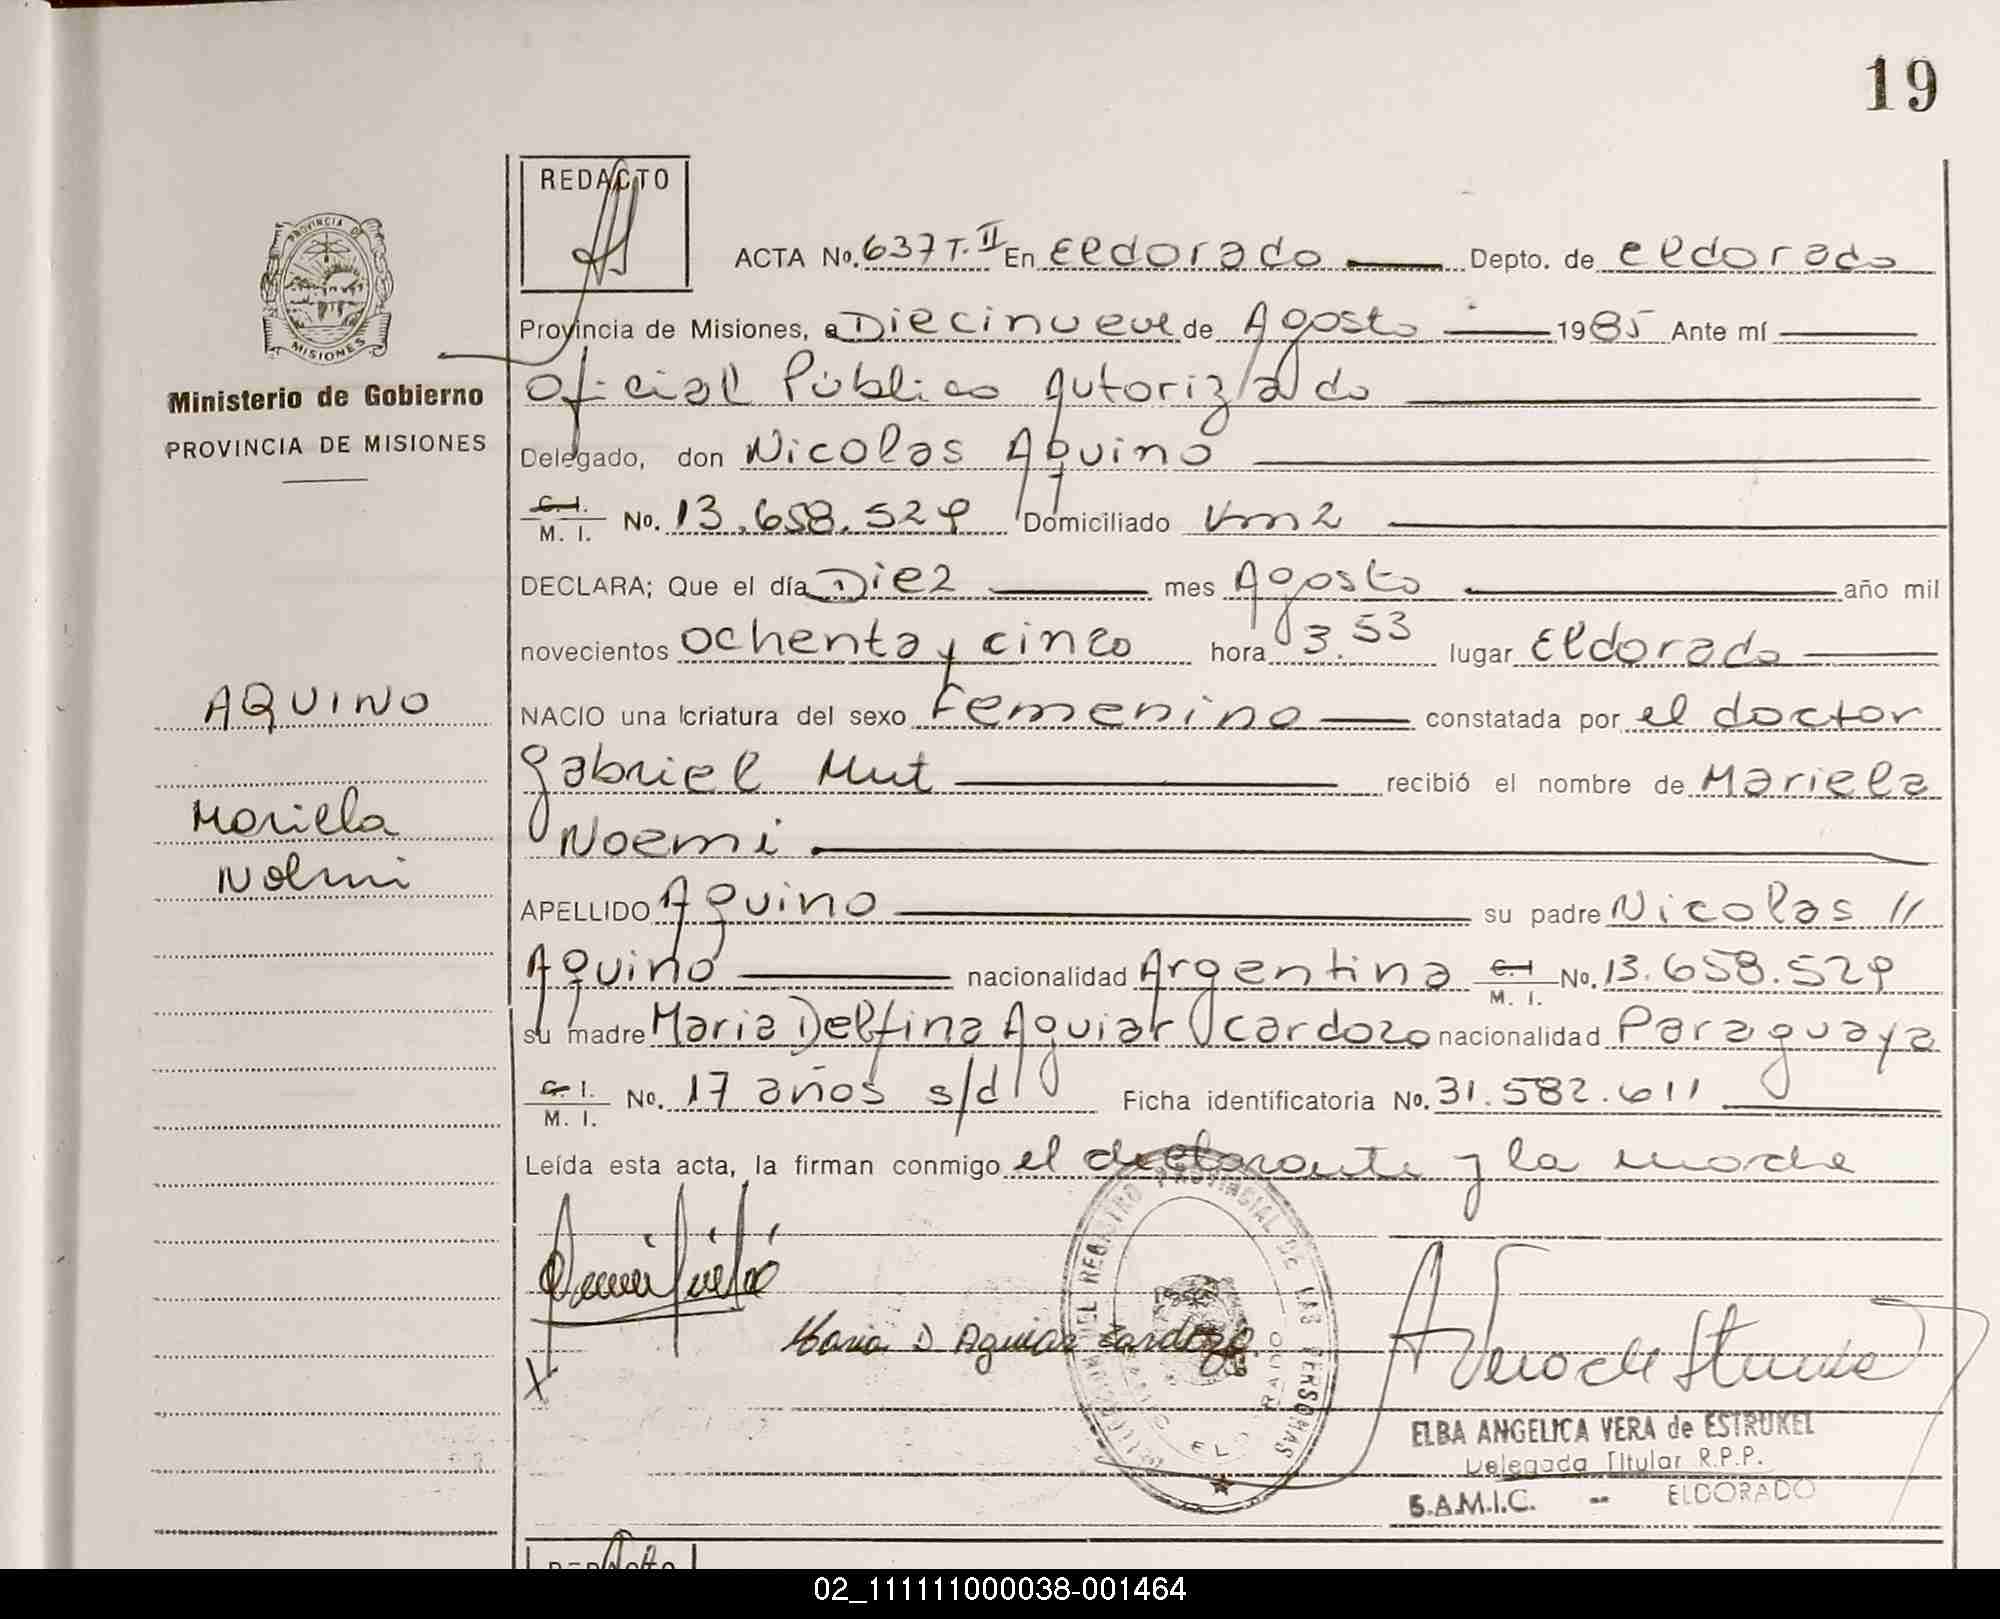 19
REDACTO
PROVINCIA DE
MISIONES
Ministerio de Gobierno
PROVINCIA DE MISIONES
ACTA No. 637 T. II En Eldorado Depto. de eldorado
Provincia de Misiones, a Diecinueve de Agosto 1985 Ante mí
Oficial Público Autorizado
Delegado, don Nicolas Aquino
C. I. M. I. No. 13.658.529 Domiciliado Km 2
DECLARA; Que el día Diez mes Agosto año mil
novecientos ochenta y cinco hora 3.53 lugar Eldorado
AQUINO
NACIO una criatura del sexo Femenino constatada por el doctor
Gabriel Mut recibió el nombre de Mariela
Mariela
Noemi
Noemi
APELLIDO Aquino su padre Nicolas //
Aquino nacionalidad Argentina C. I. M. I. No. 13.658.529
su madre Maria Delfina Aguiar Cardozo nacionalidad Paraguaya
C. I. M. I. No. 17 años s/d Ficha identificatoria No. 31.582.611
Leída esta acta, la firman conmigo el declarante y la madre
Maria D Aguiar Cardozo
DEL REGISTRO PROVINCIAL DE LAS PERSONAS
ELDORADO
ELBA ANGELICA VERA de ESTRUKEL
Delegada Titular R.P.P.
S.A.M.I.C. - ELDORADO
REDACTO
02_111111000038-001464